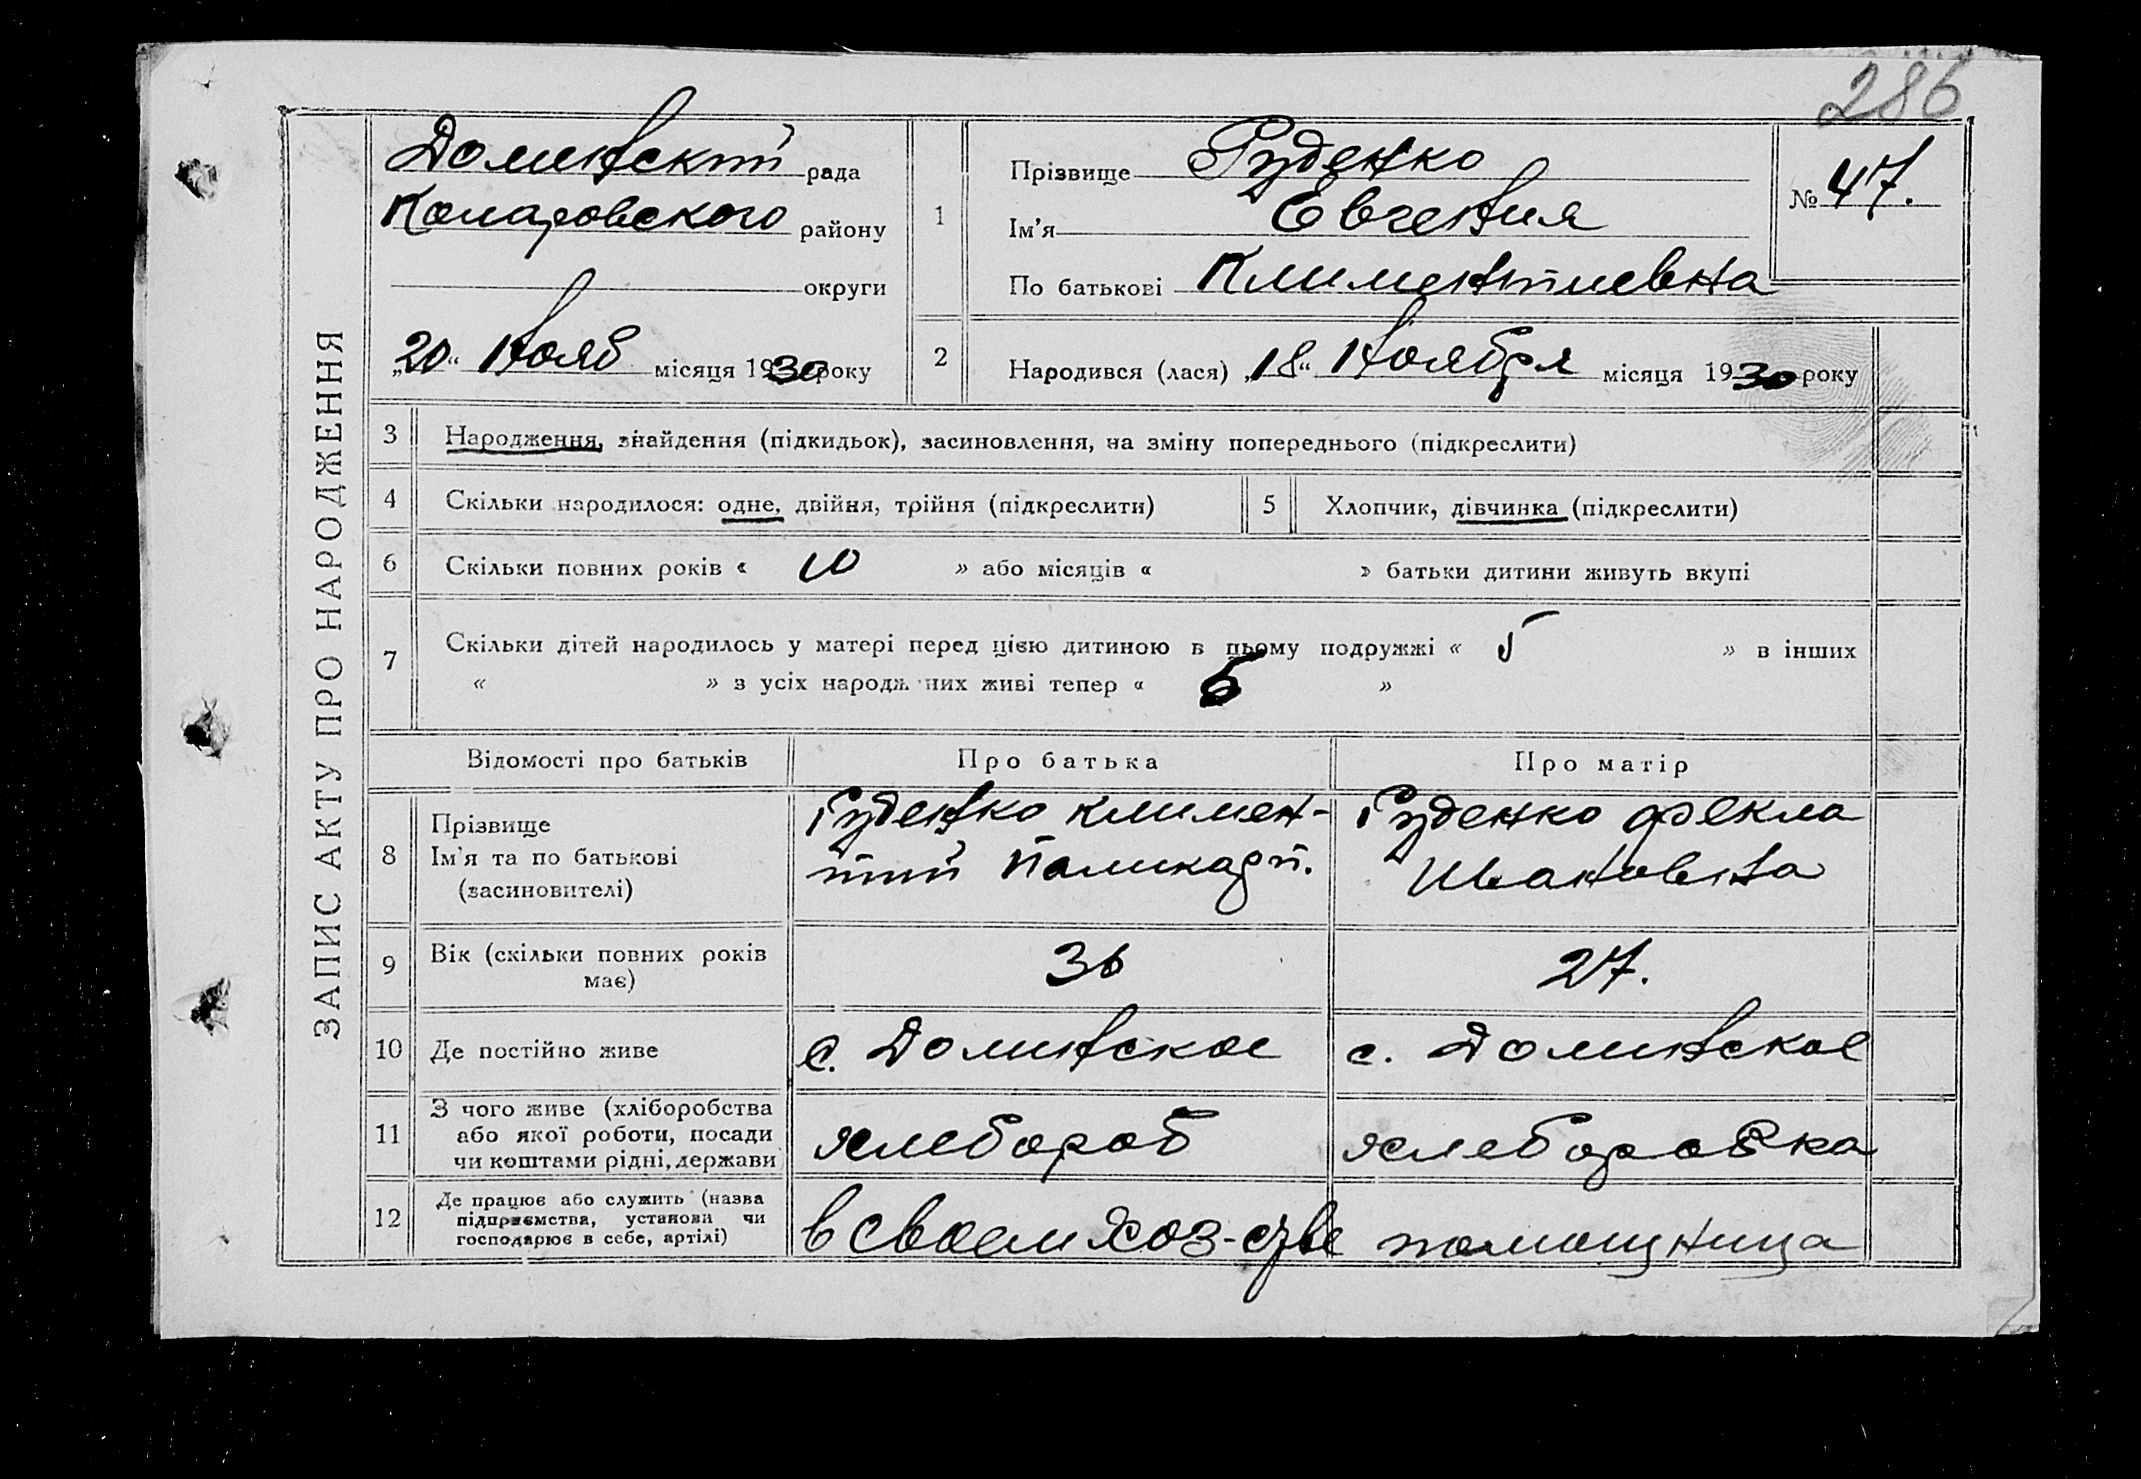 286
ЗАПИС АКТУ ПРО НАРОДЖЕННЯ
Долинский рада
Комаровского району
округи
„20“ Нояб місяця 1930 року
1
Прізвище Руденко
Ім’я Евгения
По батькові Климентиевна
№ 47.
2
Народився (лася) „18“ Ноября місяця 1930 року
3 Народження, знайдення (підкидьок), засиновлення, на зміну попереднього (підкреслити)
4 Скільки народилося: одне, двійня, трійня (підкреслити) 5 Хлопчик, дівчинка (підкреслити)
6 Скільки повних років « 10 » або місяців « » батьки дитини живуть вкупі
7 Скільки дітей народилось у матері перед цією дитиною в цьому подружжі « 5 » в інших
« » з усіх народж них живі тепер « »
Відомості про батьків Про батька Про матір
8 Прізвище
Ім’я та по батькові
(засиновителі)
Руденко Климен-
тий Поликарп.
Руденко Фекла
Ивановна
9 Вік (скільки повних років
має)
36 27.
10 Де постійно живе с. Долинское с. Долинское
11 З чого живе (хліборобства
або якої роботи, посади
чи коштами рідні, держави
хлебороб хлеборобка
12 Де працює або служить (назва
підприємства, установи чи
господарює в себе, артілі)
в своем хоз-стве помощница